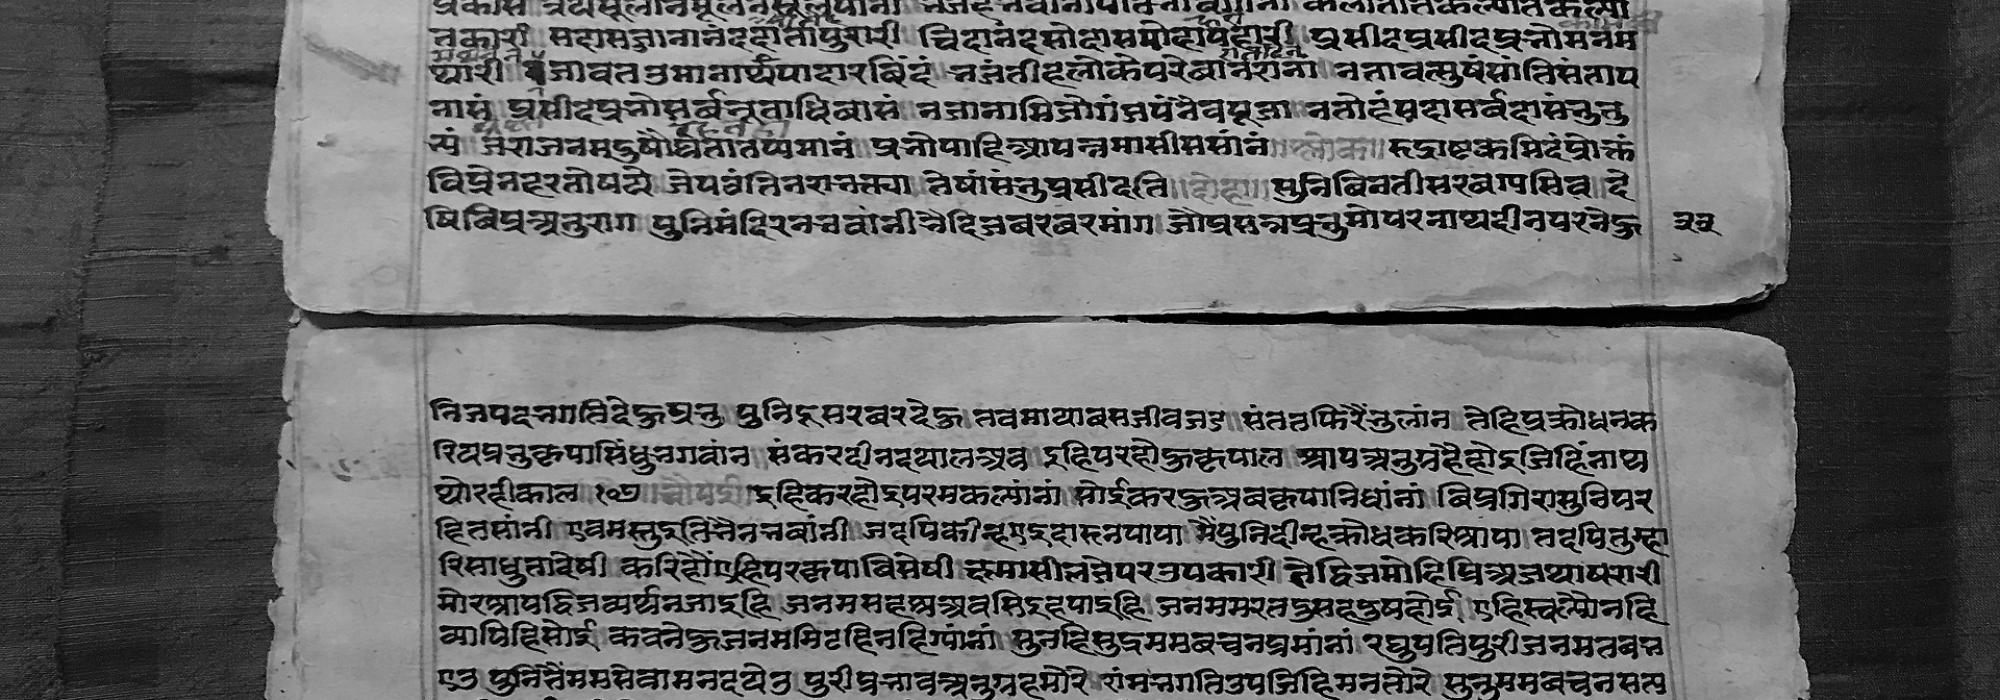 तकारी सदासज्जनानंददातापुरारी चिदानंदसंदोहमोहापहारी प्रसीदप्रसीदप्रभोमन्म
थारी नजावतउमानाथपादारबिंदं भजंतीहलोकेपरेबानरानां नतावत्सुषंसांतिसंताप
नासं प्रसीदप्रभोसर्बभूताधिबासं नजानामिजोगंजपंनैवपूजा नतोहंसदासर्बदासंभुतु
भ्यं जराजन्मदुषौघतातप्यमानं प्रभोपाहिआपन्नमामीससंभो श्लोक रुद्राष्टकमिदंप्रोक्तं
बिप्रेनहरतोषये जेपठंतिनराभक्त्या तेषांसंभुप्रसीदति दोहा सुनिबिनतीसरबग्यसिव दे
षिबिप्रअनुराग पुनिमंदिरनभबांनीभैद्विजबरबरमांग जौप्रसन्नप्रभुमोपरनाथदीनपरनेहु ५५
निजपदभगतिदेहुप्रभु पुनिदूसरबरदेहु तवमायाबसजीवजड संततफिरैंभुलांन तेहिपरक्रोधनक
रियप्रभुकृपासिंधुभगवांन संकरदीनदयालअब इहिपरहोहुकृपाल श्रापअनुग्रहहोइजिहिंनाथ
थोरहीकाल १०७ चौपई इहिकरहोइपरमकल्यांनां सोईकरहुअबकृपानिधांनां बिप्रगिरासुनिपर
हितसांनी एवमस्तुइतिभैनभबांनी जदपिकीन्हएइदारुनपापा मैंपुनिदीन्हक्रोधकरिश्रापा तदपितुम्हा
रिसाधुतादेषी करिहौंएहिपरकृपाबिसेषी छमासीलजेपरउपकारी तेद्विजमोहिप्रिअजथाषरारी
मोरश्रापद्विजब्यर्थनजाइहि जनमसहस्रअवसिइहपाइहि जनममरतदुसहदुषहोई एहिस्वल्पौनहि
ब्यापिहिसोई कवनेहुजनममिटहिनहिग्यांनां सुनहिसुद्रममबचनप्रमांनां रघुपतिपुरीजनमतबभ
एउ पुनितैंममसेवामनदयेउ पुरीप्रभावअनुग्रहमोरे रांमभगतिउपजिहिमनतोरे सुनुममबचनसत्य